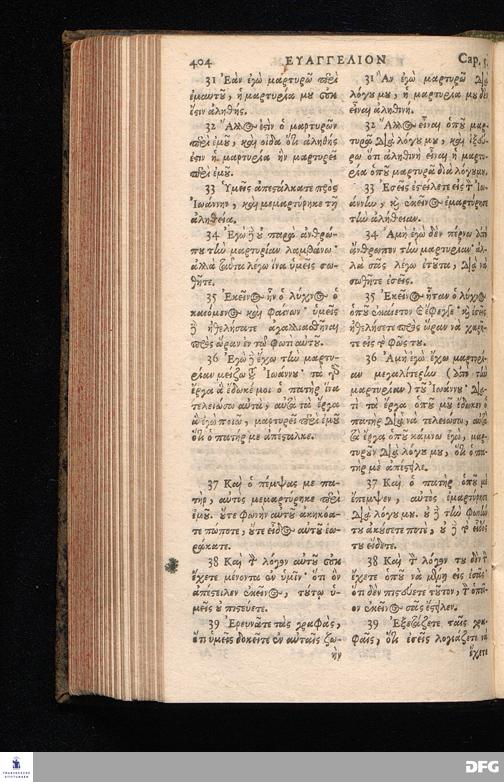 404 ΕΥΑΓΓΕΛΙΟΝ Cap. 5.
31 Ἐὰν ἐγὼ μαρτυρῶ περὶ
ἐμαυτοῦ, ἡ μαρτυρία μου οὐκ
ἔστιν ἀληθής.
32 Ἄλλος ἐστὶν ὁ μαρτυρῶν
περὶ ἐμοῦ, καὶ οἶδα ὅτι ἀληθής
ἐστιν ἡ μαρτυρία ἣν μαρτυρεῖ
περὶ ἐμοῦ.
33 Ὑμεῖς ἀπεστάλκατε πρὸς
Ἰωάννην, καὶ μεμαρτύρηκε τῇ
ἀληθείᾳ.
34 Ἐγὼ δὲ οὐ παρὰ ἀνθρώ-
που τὴν μαρτυρίαν λαμβάνω·
ἀλλὰ ταῦτα λέγω ἵνα ὑμεῖς σω-
θῆτε.
35 Ἐκεῖνος ἦν ὁ λύχνος ὁ
καιόμενος καὶ φαίνων· ὑμεῖς
δὲ ἠθελήσατε ἀγαλλιασθῆναι
πρὸς ὥραν ἐν τῷ φωτὶ αὐτοῦ.
36 Ἐγὼ δὲ ἔχω τὴν μαρτυ-
ρίαν μείζω τοῦ Ἰωάννου· τὰ γὰρ
ἔργα ἃ ἔδωκέ μοι ὁ πατὴρ ἵνα
τελειώσω αὐτὰ, αὐτὰ τὰ ἔργα
ἃ ἐγὼ ποιῶ, μαρτυρεῖ περὶ ἐμοῦ
ὅτι ὁ πατήρ με ἀπέσταλκε.
37 Καὶ ὁ πέμψας με πα-
τὴρ, αὐτὸς μεμαρτύρηκε περὶ
ἐμοῦ. οὔτε φωνὴν αὐτοῦ ἀκηκόα-
τε πώποτε, οὔτε εἶδος αὐτοῦ ἑω-
ράκατε.
38 Καὶ τὸν λόγον αὐτοῦ οὐκ
ἔχετε μένοντα ἐν ὑμῖν· ὅτι ὃν
ἀπέστειλεν ἐκεῖνος, τούτῳ ὑ-
μεῖς οὐ πιστεύετε.
39 Ἐρευνᾶτε τὰς γραφὰς,
ὅτι ὑμεῖς δοκεῖτε ἐν αὐταῖς ζω-
ὴν
31 Ἂν ἐγὼ μαρτυρῶ διὰ
λόγου μου, ἡ μαρτυρία μου δὲν
εἶναι ἀληθινή.
32 Ἄλλος εἶναι ὁποῦ μαρ-
τυρᾷ διὰ λόγου μου, καὶ ἐξεύ-
ρω ὅτι ἀληθινὴ εἶναι ἡ μαρτυ-
ρία ὁποῦ μαρτυρᾷ διὰ λόγου μου.
33 Ἐσεῖς ἐστείλετε εἰς τὸν Ἰω-
άννην, καὶ ἐκεῖνος ἐμαρτύρησε
τὴν ἀλήθειαν.
34 Ἀμὴ ἐγὼ δὲν πέρνω ἀπὸ
ἄνθρωπον τὴν μαρτυρίαν· ἀλ-
λὰ σᾶς λέγω ἐτοῦτα, διὰ νὰ
σωθῆτε ἐσεῖς.
35 Ἐκεῖνος ἦταν ὁ λύχνος
ὁποῦ ἐκαίετον καὶ ἔφεγγε· καὶ ἐσεῖς
ἠθελήσετε πρὸς ὥραν νὰ χαρῆ-
τε εἰς τὸ φῶς του.
36 Ἀμὴ ἐγὼ ἔχω μαρτυρί-
αν μεγαλίτερην (ἀπὸ τὴν
μαρτυρίαν) τοῦ Ἰωάννου· δια-
τὶ τὰ ἔργα ὁποῦ μοῦ ἔδωκεν ὁ
πατὴρ διὰ νὰ τελειώσω, αὐτὰ
τὰ ἔργα ὁποῦ κάμνω ἐγὼ, μαρ-
τυροῦν διὰ λόγου μου, ὅτι ὁ πα-
τὴρ μὲ ἀπέστειλε.
37 Καὶ ὁ πατὴρ ὁποῦ μὲ
ἔπεμψεν, αὐτὸς ἐμαρτύρησε
διὰ λόγου μου. οὐδὲ τὴν φωνήν
του ἀκούσετε ποτὲ, οὐδὲ τὸ εἶδός
του εἴδετε.
38 Καὶ τὸν λόγον του δὲν τὸν
ἔχετε ὁποῦ νὰ μένῃ εἰς ἐσᾶς·
ὅτι δὲν πιστεύετε τοῦτον, τὸν ὁποῖ-
ον ἐκεῖνος σᾶς ἔστειλεν.
39 Ἐξετάζετε ταῖς γρα-
φαῖς, ὅτι ἐσεῖς λογιάζετε νὰ
ἔχετε
DFG